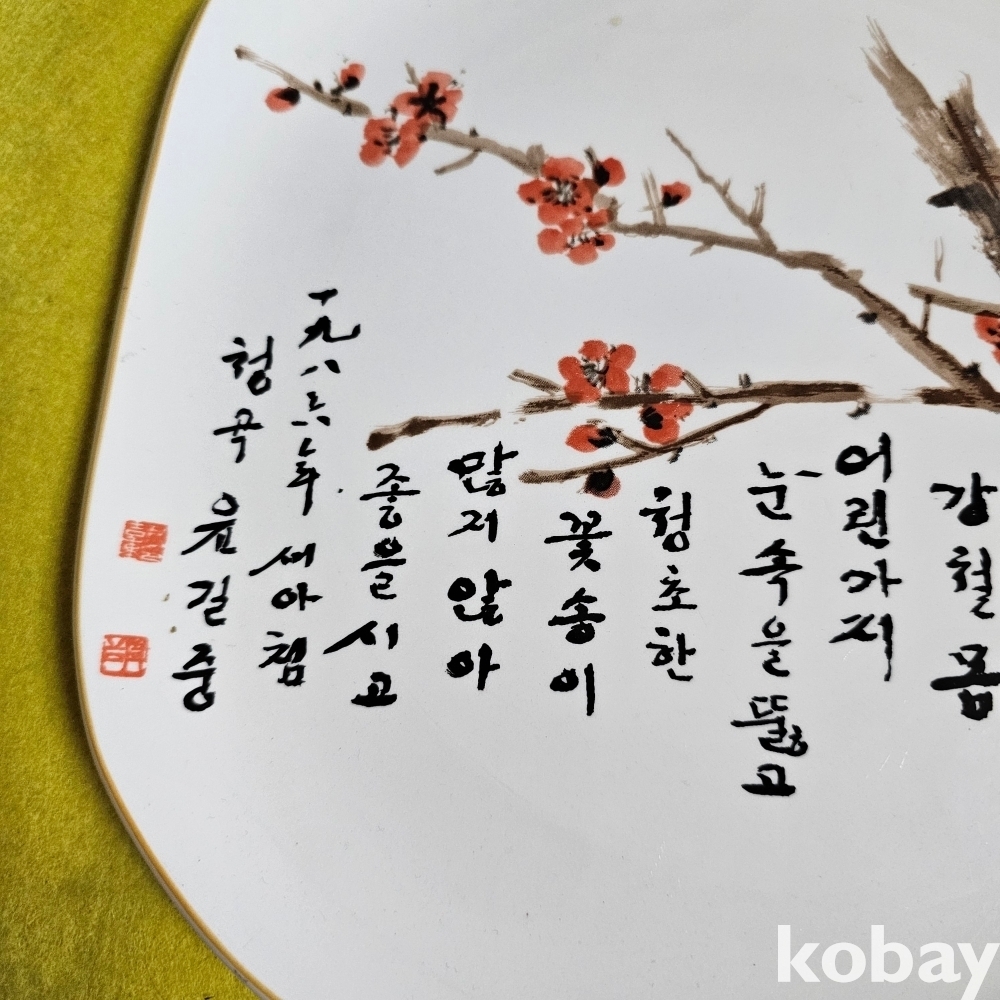 강철몸
어린가지
눈속을뚫고
청초한
꽃송이
많지않아
좋을시고
一九八六年 새아침
청곡 윤길중
kobay